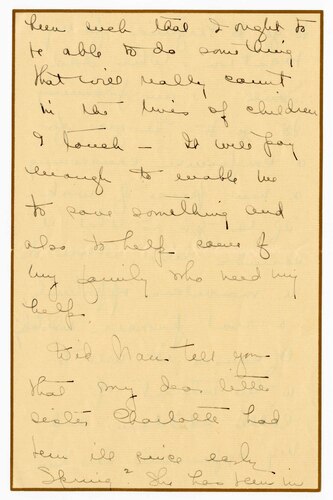 been such that I ought to
be able to do something
that will really count
in the lives of children
I touch – It will pay
enough to enable me
to save something and
also to help some of
my family who need my
help.
Did Nan tell you
that my dear little
sister Charlotte had
been ill since early
Spring? She has been in